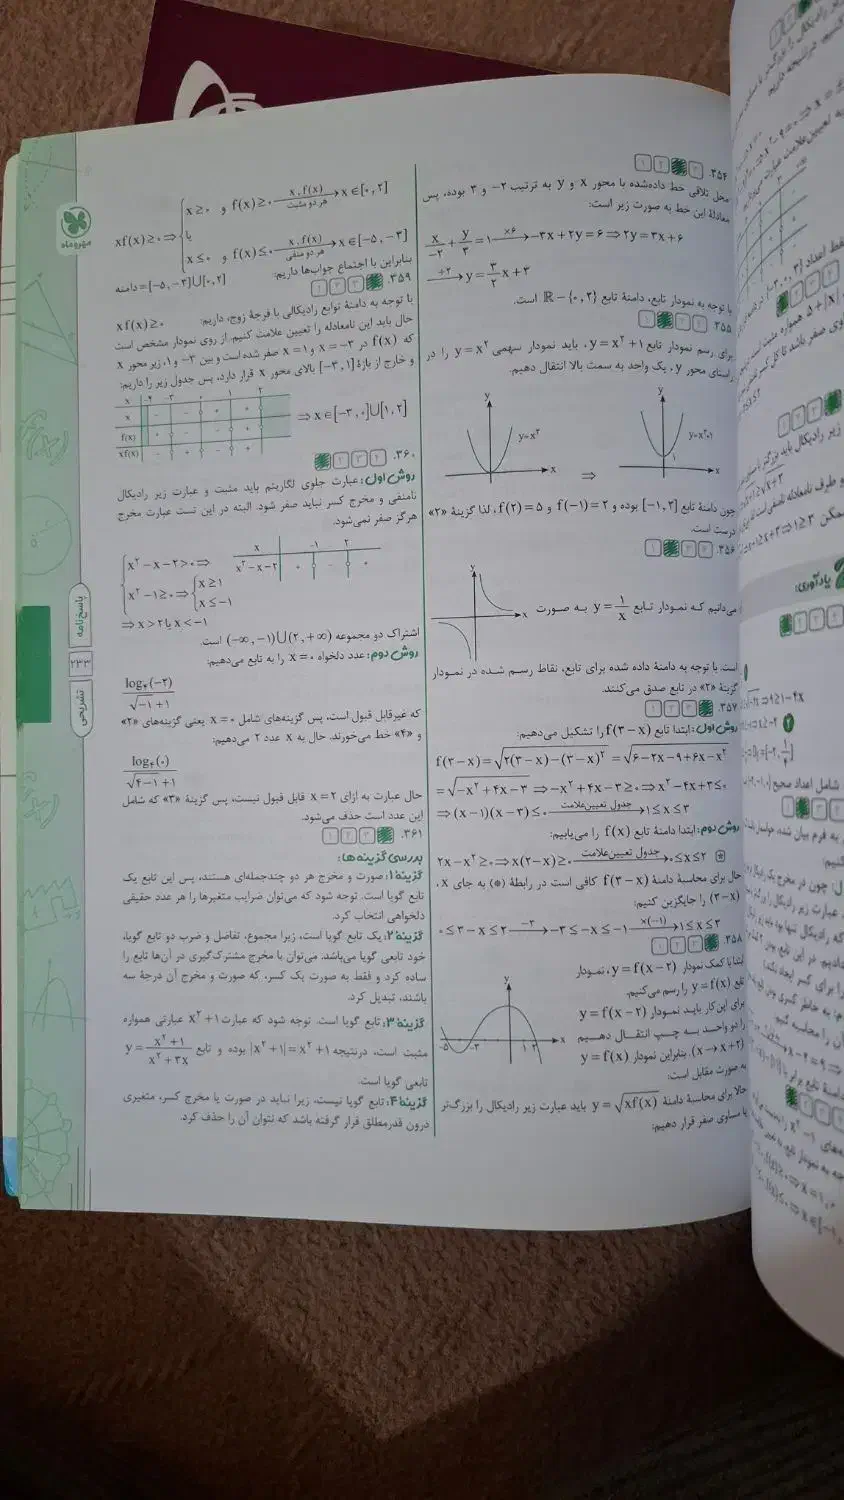 ۳۵۴.
محل تلاقی خط داده‌شده با محور x و y به ترتیب ۲− و ۳ بوده، پس
معادلهٔ این خط به صورت زیر است:
x/−۲ + y/۳ = ۱ —×۶→ −۳x + ۲y = ۶ ⇒ ۲y = ۳x + ۶
—÷۲→ y = ۳/۲ x + ۳
با توجه به نمودار تابع، دامنهٔ تابع ℝ − {۰, ۲} است.
۳۵۵.
برای رسم نمودار تابع y = x² + ۱، باید نمودار سهمی y = x² را در
راستای محور y، یک واحد به سمت بالا انتقال دهیم.
y=x² ⇒ y=x²+۱
چون دامنهٔ تابع [−۱, ۲] بوده و f(−۱) = ۲ و f(۲) = ۵، لذا گزینهٔ «۲»
درست است.
۳۵۶.
می‌دانیم که نمودار تابع y = ۱/x به صورت
است. با توجه به دامنهٔ داده شده برای تابع، نقاط رسم شده در نمودار
گزینهٔ «۲» در تابع صدق می‌کنند.
۳۵۷.
روش اول: ابتدا تابع f(۳ − x) را تشکیل می‌دهیم:
f(۳ − x) = √(۲(۳ − x) − (۳ − x)²) = √(۶ − ۲x − ۹ + ۶x − x²)
= √(−x² + ۴x − ۳) ⇒ −x² + ۴x − ۳ ≥ ۰ ⇒ x² − ۴x + ۳ ≤ ۰
⇒ (x − ۱)(x − ۳) ≤ ۰ —جدول تعیین‌علامت→ ۱ ≤ x ≤ ۳
روش دوم: ابتدا دامنهٔ تابع f(x) را می‌یابیم:
۲x − x² ≥ ۰ ⇒ x(۲ − x) ≥ ۰ —جدول تعیین‌علامت→ ۰ ≤ x ≤ ۲ ✻
حال برای محاسبهٔ دامنهٔ f(۳ − x) کافی است در رابطهٔ (✻) به جای x،
(۳ − x) را جایگزین کنیم:
۰ ≤ ۳ − x ≤ ۲ —−۳→ −۳ ≤ −x ≤ −۱ —×(−۱)→ ۱ ≤ x ≤ ۳
۳۵۸.
ابتدا با کمک نمودار y = f(x − ۲)، نمودار
تابع y = f(x) را رسم می‌کنیم.
برای این‌کار باید نمودار y = f(x − ۲)
را دو واحد به چپ انتقال دهیم
(x → x + ۲). بنابراین نمودار y = f(x)
به صورت مقابل است:
حالا برای محاسبهٔ دامنهٔ y = √(xf(x)) باید عبارت زیر رادیکال را بزرگ‌تر
یا مساوی صفر قرار دهیم:
xf(x) ≥ ۰ ⇒
x ≥ ۰ و f(x) ≥ ۰ —x, f(x) هر دو مثبت→ x ∈ [۰, ۲]
یا
x ≤ ۰ و f(x) ≤ ۰ —x, f(x) هر دو منفی→ x ∈ [−۵, −۳]
بنابراین با اجتماع جواب‌ها داریم: دامنه = [−۵, −۳] ∪ [۰, ۲]
۳۵۹.
با توجه به دامنهٔ توابع رادیکالی با فرجهٔ زوج، داریم: xf(x) ≥ ۰
حال باید این نامعادله را تعیین علامت کنیم. از روی نمودار مشخص است
که f(x) در x = −۳ و x = ۱ صفر شده است و بین ۳− و ۱، زیر محور x
و خارج از بازهٔ [−۳, ۱] بالای محور x قرار دارد، پس جدول زیر را داریم:
x −۴ −۳ ۰ ۱ ۲
x − − + +
f(x) + − − +
xf(x) − + − +
⇒ x ∈ [−۳, ۰] ∪ [۱, ۲]
۳۶۰.
روش اول: عبارت جلوی لگاریتم باید مثبت و عبارت زیر رادیکال
نامنفی و مخرج کسر نباید صفر شود. البته در این تست عبارت مخرج
هرگز صفر نمی‌شود.
x² − x − ۲ > ۰ ⇒
x −۱ ۲
x² − x − ۲ + − +
x² − ۱ ≥ ۰ ⇒ x ≥ ۱
x ≤ −۱
⇒ x > ۲ یا x < −۱
اشتراک دو مجموعه (−∞, −۱) ∪ (۲, +∞) است.
روش دوم: عدد دلخواه x = ۰ را به تابع می‌دهیم:
log₄(−۲) / √−۱ + ۱
که غیرقابل قبول است، پس گزینه‌های شامل x = ۰ یعنی گزینه‌های «۲»
و «۴» خط می‌خورند. حال به x عدد ۲ می‌دهیم:
log₄(۰) / √۴−۱ + ۱
حال عبارت به ازای x = ۲ قابل قبول نیست، پس گزینهٔ «۳» که شامل
این عدد است حذف می‌شود.
۳۶۱.
بررسی گزینه‌ها:
گزینهٔ ۱: صورت و مخرج هر دو چندجمله‌ای هستند، پس این تابع یک
تابع گویا است. توجه شود که می‌توان ضرایب متغیرها را هر عدد حقیقی
دلخواهی انتخاب کرد.
گزینهٔ ۲: یک تابع گویا است، زیرا مجموع، تفاضل و ضرب دو تابع گویا،
خود تابعی گویا می‌باشد. می‌توان با مخرج مشترک‌گیری در آن‌ها تابع را
ساده کرد و فقط به صورت یک کسر، که صورت و مخرج آن درجهٔ سه
باشند، تبدیل کرد.
گزینهٔ ۳: تابع گویا است. توجه شود که عبارت x² + ۱ عبارتی همواره
مثبت است، درنتیجه |x² + ۱| = x² + ۱ بوده و تابع y = (x² + ۱)/(x² + ۳x)
تابعی گویا است.
گزینهٔ ۴: تابع گویا نیست، زیرا نباید در صورت یا مخرج کسر، متغیری
درون قدرمطلق قرار گرفته باشد که نتوان آن را حذف کرد.
مهروماه
پاسخ‌نامه
۲۳۳
تشریحی
یادآوری: